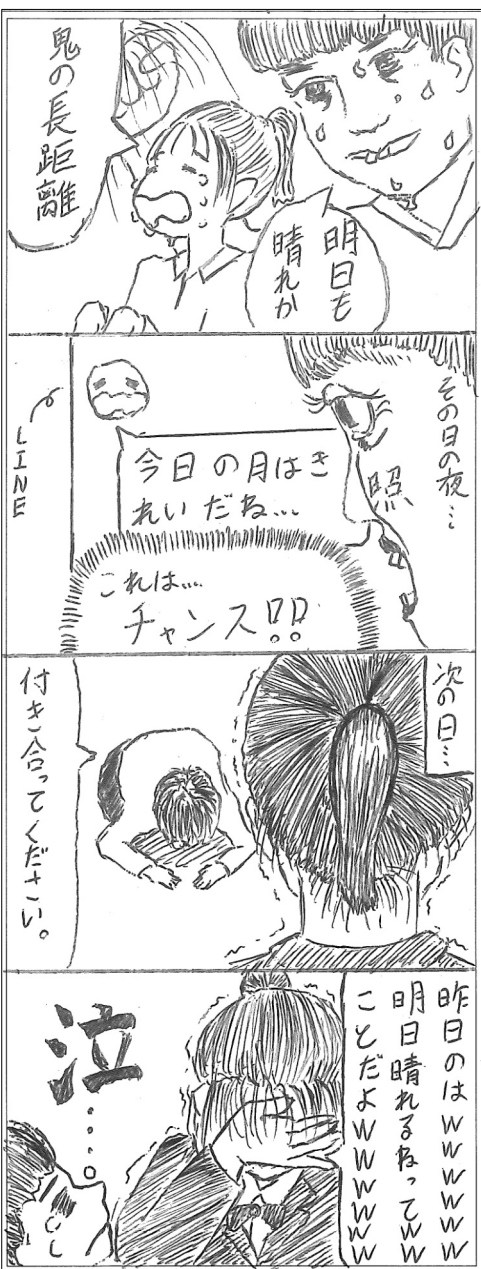 明日も
晴れか
鬼の長距離
その日の夜…
照
今日の月はき
れいだね…
これは…
チャンス!!
LINE
次の日…
付き合ってください。
昨日のはwwwwww
明日晴れるねってww
ことだよwwwwww
泣